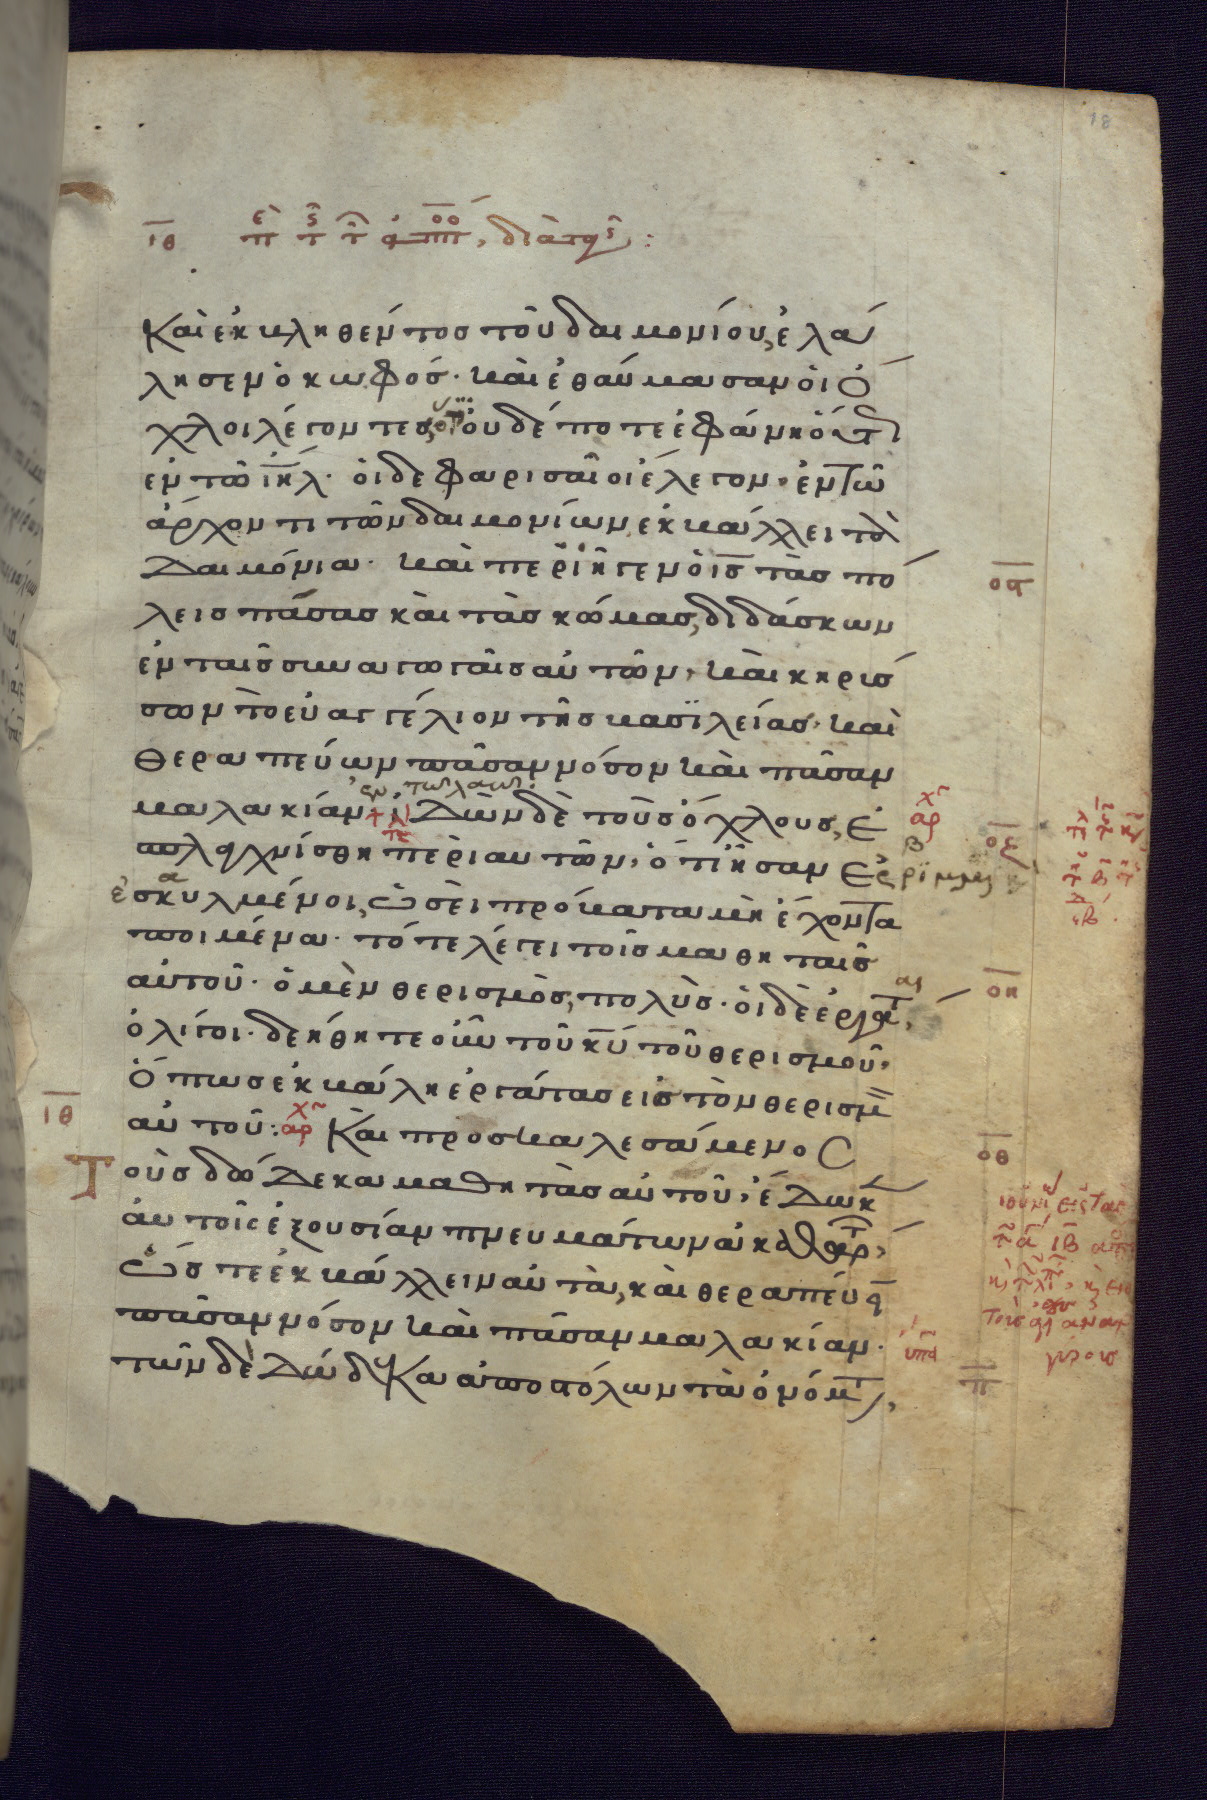 18
ιθ π τ τ αππ, διαταγ :
Καὶ ἐκβληθέντοσ τοῦ δαιμονίου, ἐλά
λησεν ὁ κωφόσ· καὶ ἐθαύμασαν ὁι ὄ
χλοι λέγοντεσ, ὅτι οὐδέποτε ἐφάνη ὅυτ
ἐν τῶ ἰηλ· ὁι δε φαρισαῖοι ἔλεγον· ἐν τῶ
ἄρχοντι τῶν δαιμονίων ἐκβάλλει τὰ
Δαιμόνια· καὶ περιῆγεν ὁ ισ τὰσ πό
λεισ πάσασ κὰι τὰσ κώμασ, διδάσκων
ἐν ταῖσ συναγωγαῖσ αὐτῶν, κὰι κηρύσ
σων τὸ εὐαγγέλιον τῆσ βασϊλείασ· καὶ
Θεραπεύων πᾶσαν νόσον κὰι πᾶσαν
ἐν τῶ λαῶ·
μαλακίαν ἰΔὼν δὲ τοὺσ ὄχλουσ, Ἐ
σπλαχνίσθη περὶ αυτῶν, ὅτι ἦσαν Ἐρριμμένοι
ἐσκυλμένοι, ὡσὲι πρόβατα μὴ ἔχοντα
ποιμένα· τότε λέγει τοῖσ μαθηταῖσ
αὐτοῦ· ὁ μὲν θερισμὸσ, πολὺσ· ὁι δὲ ἐργάτ,
ὀλίγοι· δεήθητε οὖν τοῦ κυ τοῦ θερισμοῦ,
Ὅπωσ ἐκβάλη ἐργάτασ εἰσ τὸν θερισμ
αὐτοῦ: αρχ Καὶ προσκαλεσάμενοσ
Τοὺσ δώΔεκα μαθητὰσ αὐτοῦ, ἔΔωκ
ἀυτοῖσ ἐξουσίαν πνευμάτων ἀκαθάρτ,
Ὥστε ἐκβάλλειν αὐτὰ, κὰι θεραπεύ
πᾶσαν νόσον κὰι πᾶσαν μαλακίαν·
τῶν δὲ Δώδεκα ἀποστόλων τὰ ὀνόμτ,
ιθ
οϛ
οζ
οη
οθ
π
αρχ